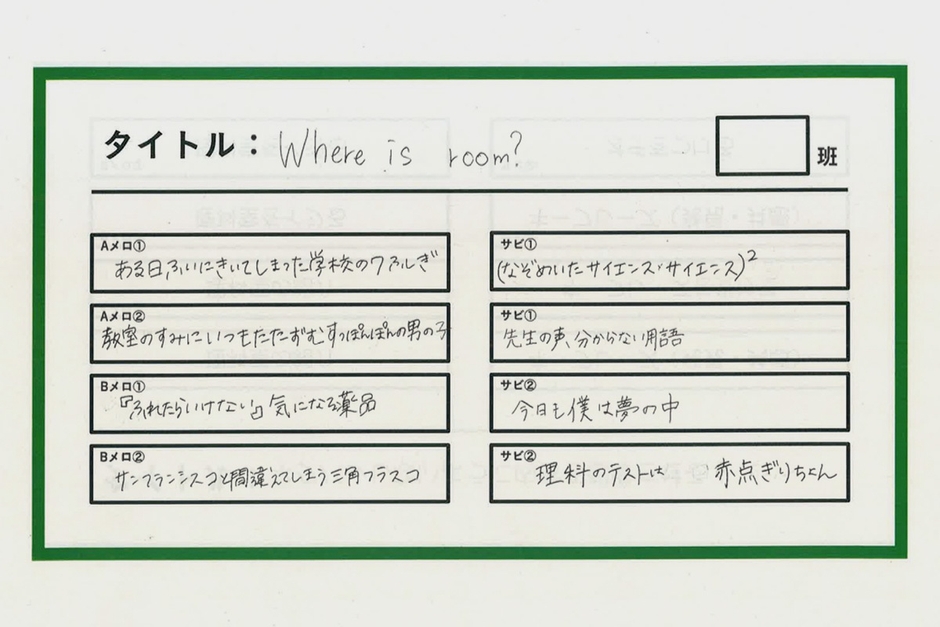 タイトル： Where is room?
班
Aメロ①
ある日ふいにきいてしまった学校の7ふしぎ
Aメロ②
教室のすみにいつもたたずむすっぽんぽんの男の子
Bメロ①
『ふれたらいけない』気になる薬品
Bメロ②
サンフランシスコと間違えてしまう三角フラスコ
サビ①
(なぞめいたサイエンス・サイエンス)²
サビ①
先生の声、分からない用語
サビ②
今日も僕は夢の中
サビ②
理科のテストは 赤点ぎりちょん